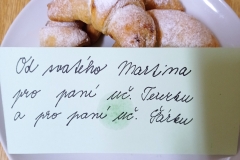 Od svatého Martina
pro paní uč. Terezku
a pro paní uč. Šárku